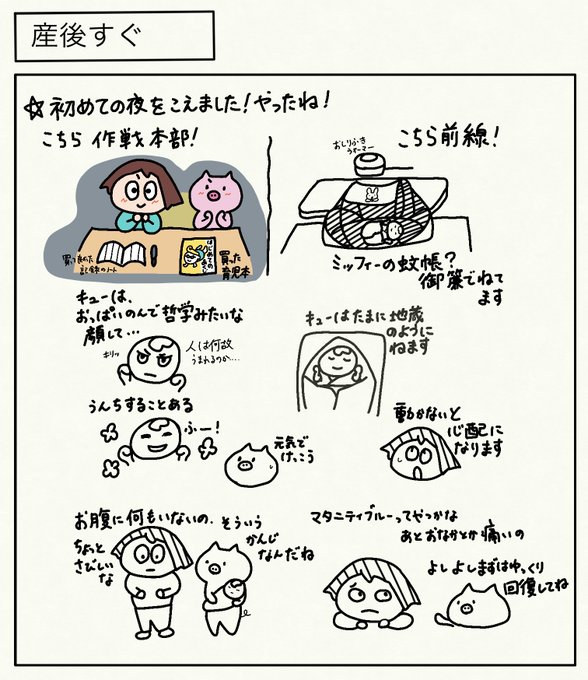 産後すぐ
☆初めての夜をこえました！やったね！
こちら作戦本部！
買っためた
記録のノート
はじめての
買った
育児本
こちら前線！
おしりふき
ウォーマー
ミッフィーの蚊帳？
御簾でねて
ます
キューは、
おっぱいのんで哲学みたいな
顔して…
キリッ
人は何故
うまれるのか…
キューはたまに地蔵
のように
ねます
うんちすることある
ふー！
元気で
けっこう
動かないと
心配に
なります
お腹に何もいないの、
ちょっと
さびしい
な
そういう
かんじ
なんだね
マタニティブルーってやつかな
あとおなかとか痛いの
よしよしまずはゆっくり
回復してね